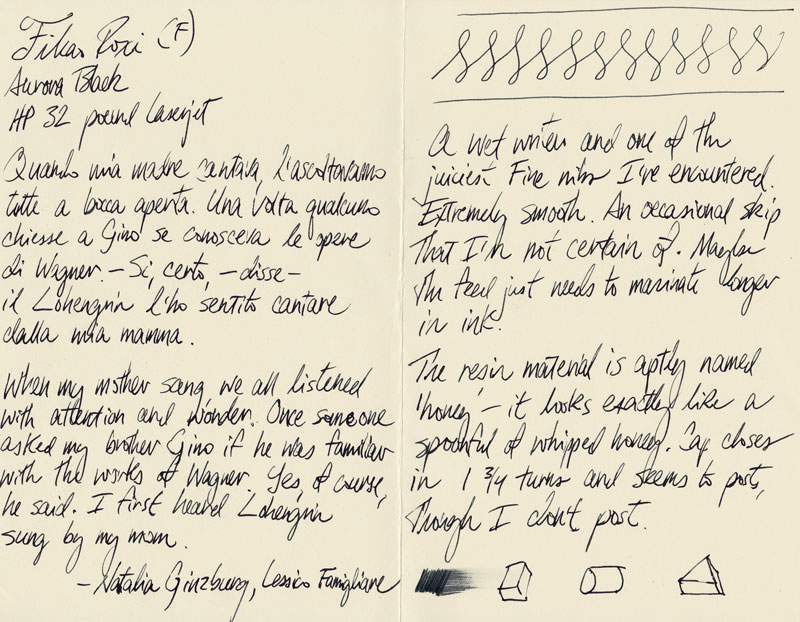 Fikas Rosi (F)
Aurora Black
HP 32 pound Laserjet
Quando mia madre cantava, l'ascoltavamo
tutti a bocca aperta. Una volta qualcuno
chiesse a Gino se conosceva le opere
di Wagner. – Si, certo, – disse –
il Lohengrin l'ho sentito cantare
dalla mia mamma.
When my mother sang, we all listened
with attention and wonder. Once someone
asked my brother Gino if he was familiar
with the works of Wagner. Yes, of course,
he said. I first heard Lohengrin
sung by my mom.
– Natalia Ginzburg, Lessico Famigliare
A wet writer and one of the
juiciest Fine nibs I've encountered.
Extremely smooth. An occasional skip
that I'm not certain of. Maybe
the feed just needs to marinate longer
in ink.
The resin material is aptly named
'honey' – it looks exactly like a
spoonful of whipped honey. Cap closes
in 1 3/4 turns and seems to post,
though I don't post.